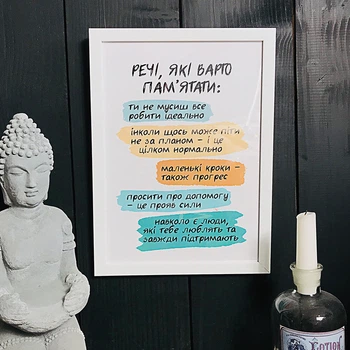 РЕЧІ, ЯКІ ВАРТО
ПАМ'ЯТАТИ:
ти не мусиш все
робити ідеально
інколи щось може піти
не за планом – і це
цілком нормально
маленькі кроки –
також прогрес
просити про допомогу
– це прояв сили
навколо є люди,
які тебе люблять та
завжди підтримають
POTION